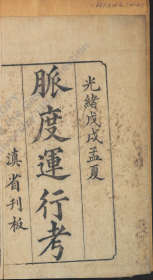 光緒戊戌孟夏
脈度運行考
滇省刊板